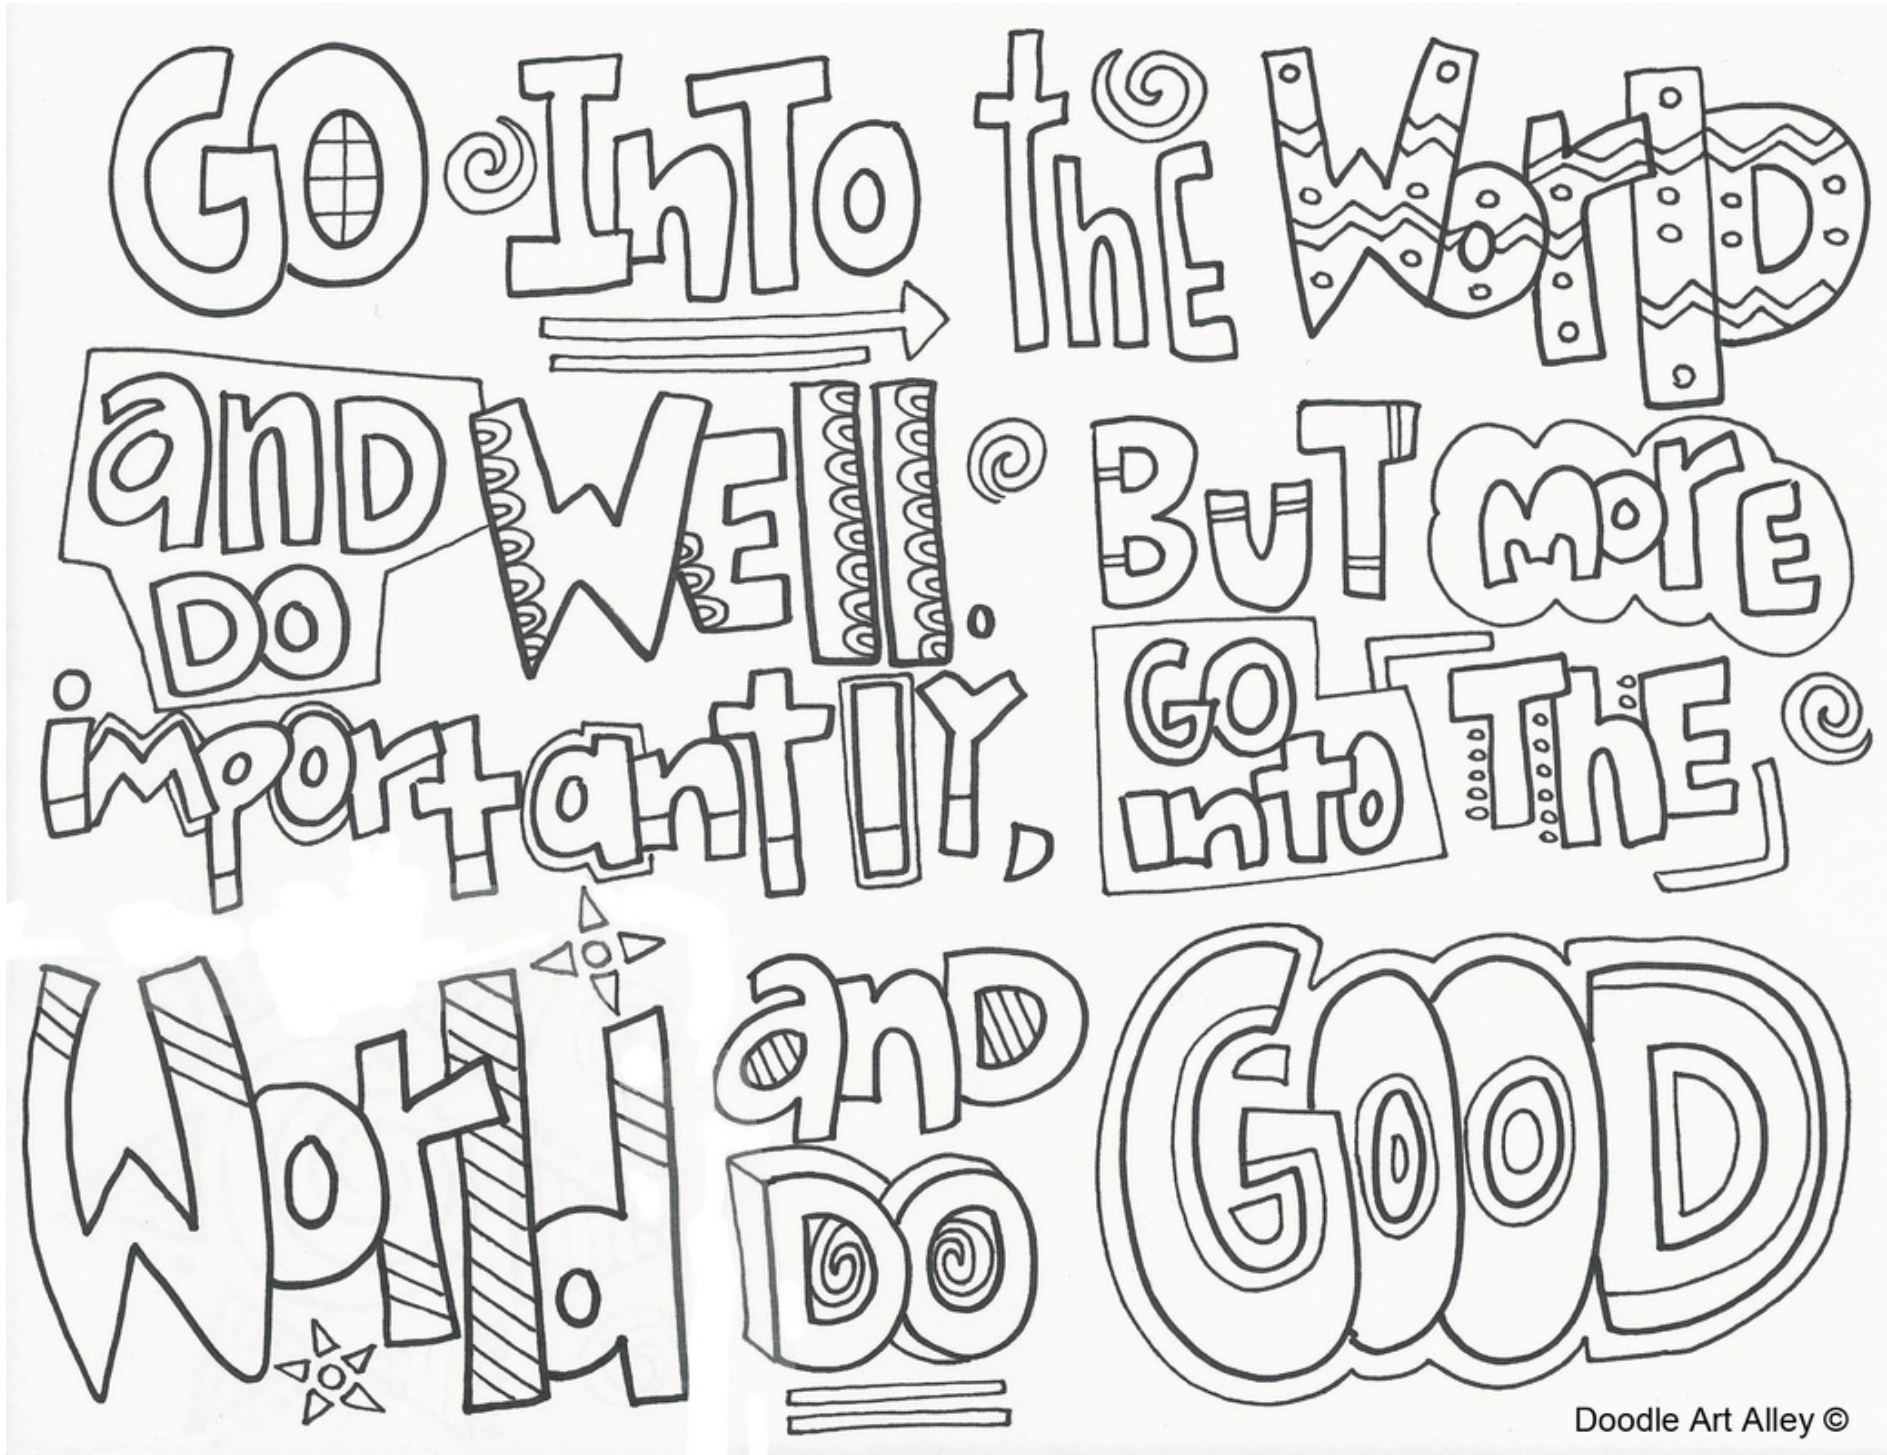 GO InTo the WorlD
anD DO WEll. BuT morE
importantlY, GO into ThE
World anD DO GOOD
Doodle Art Alley ©